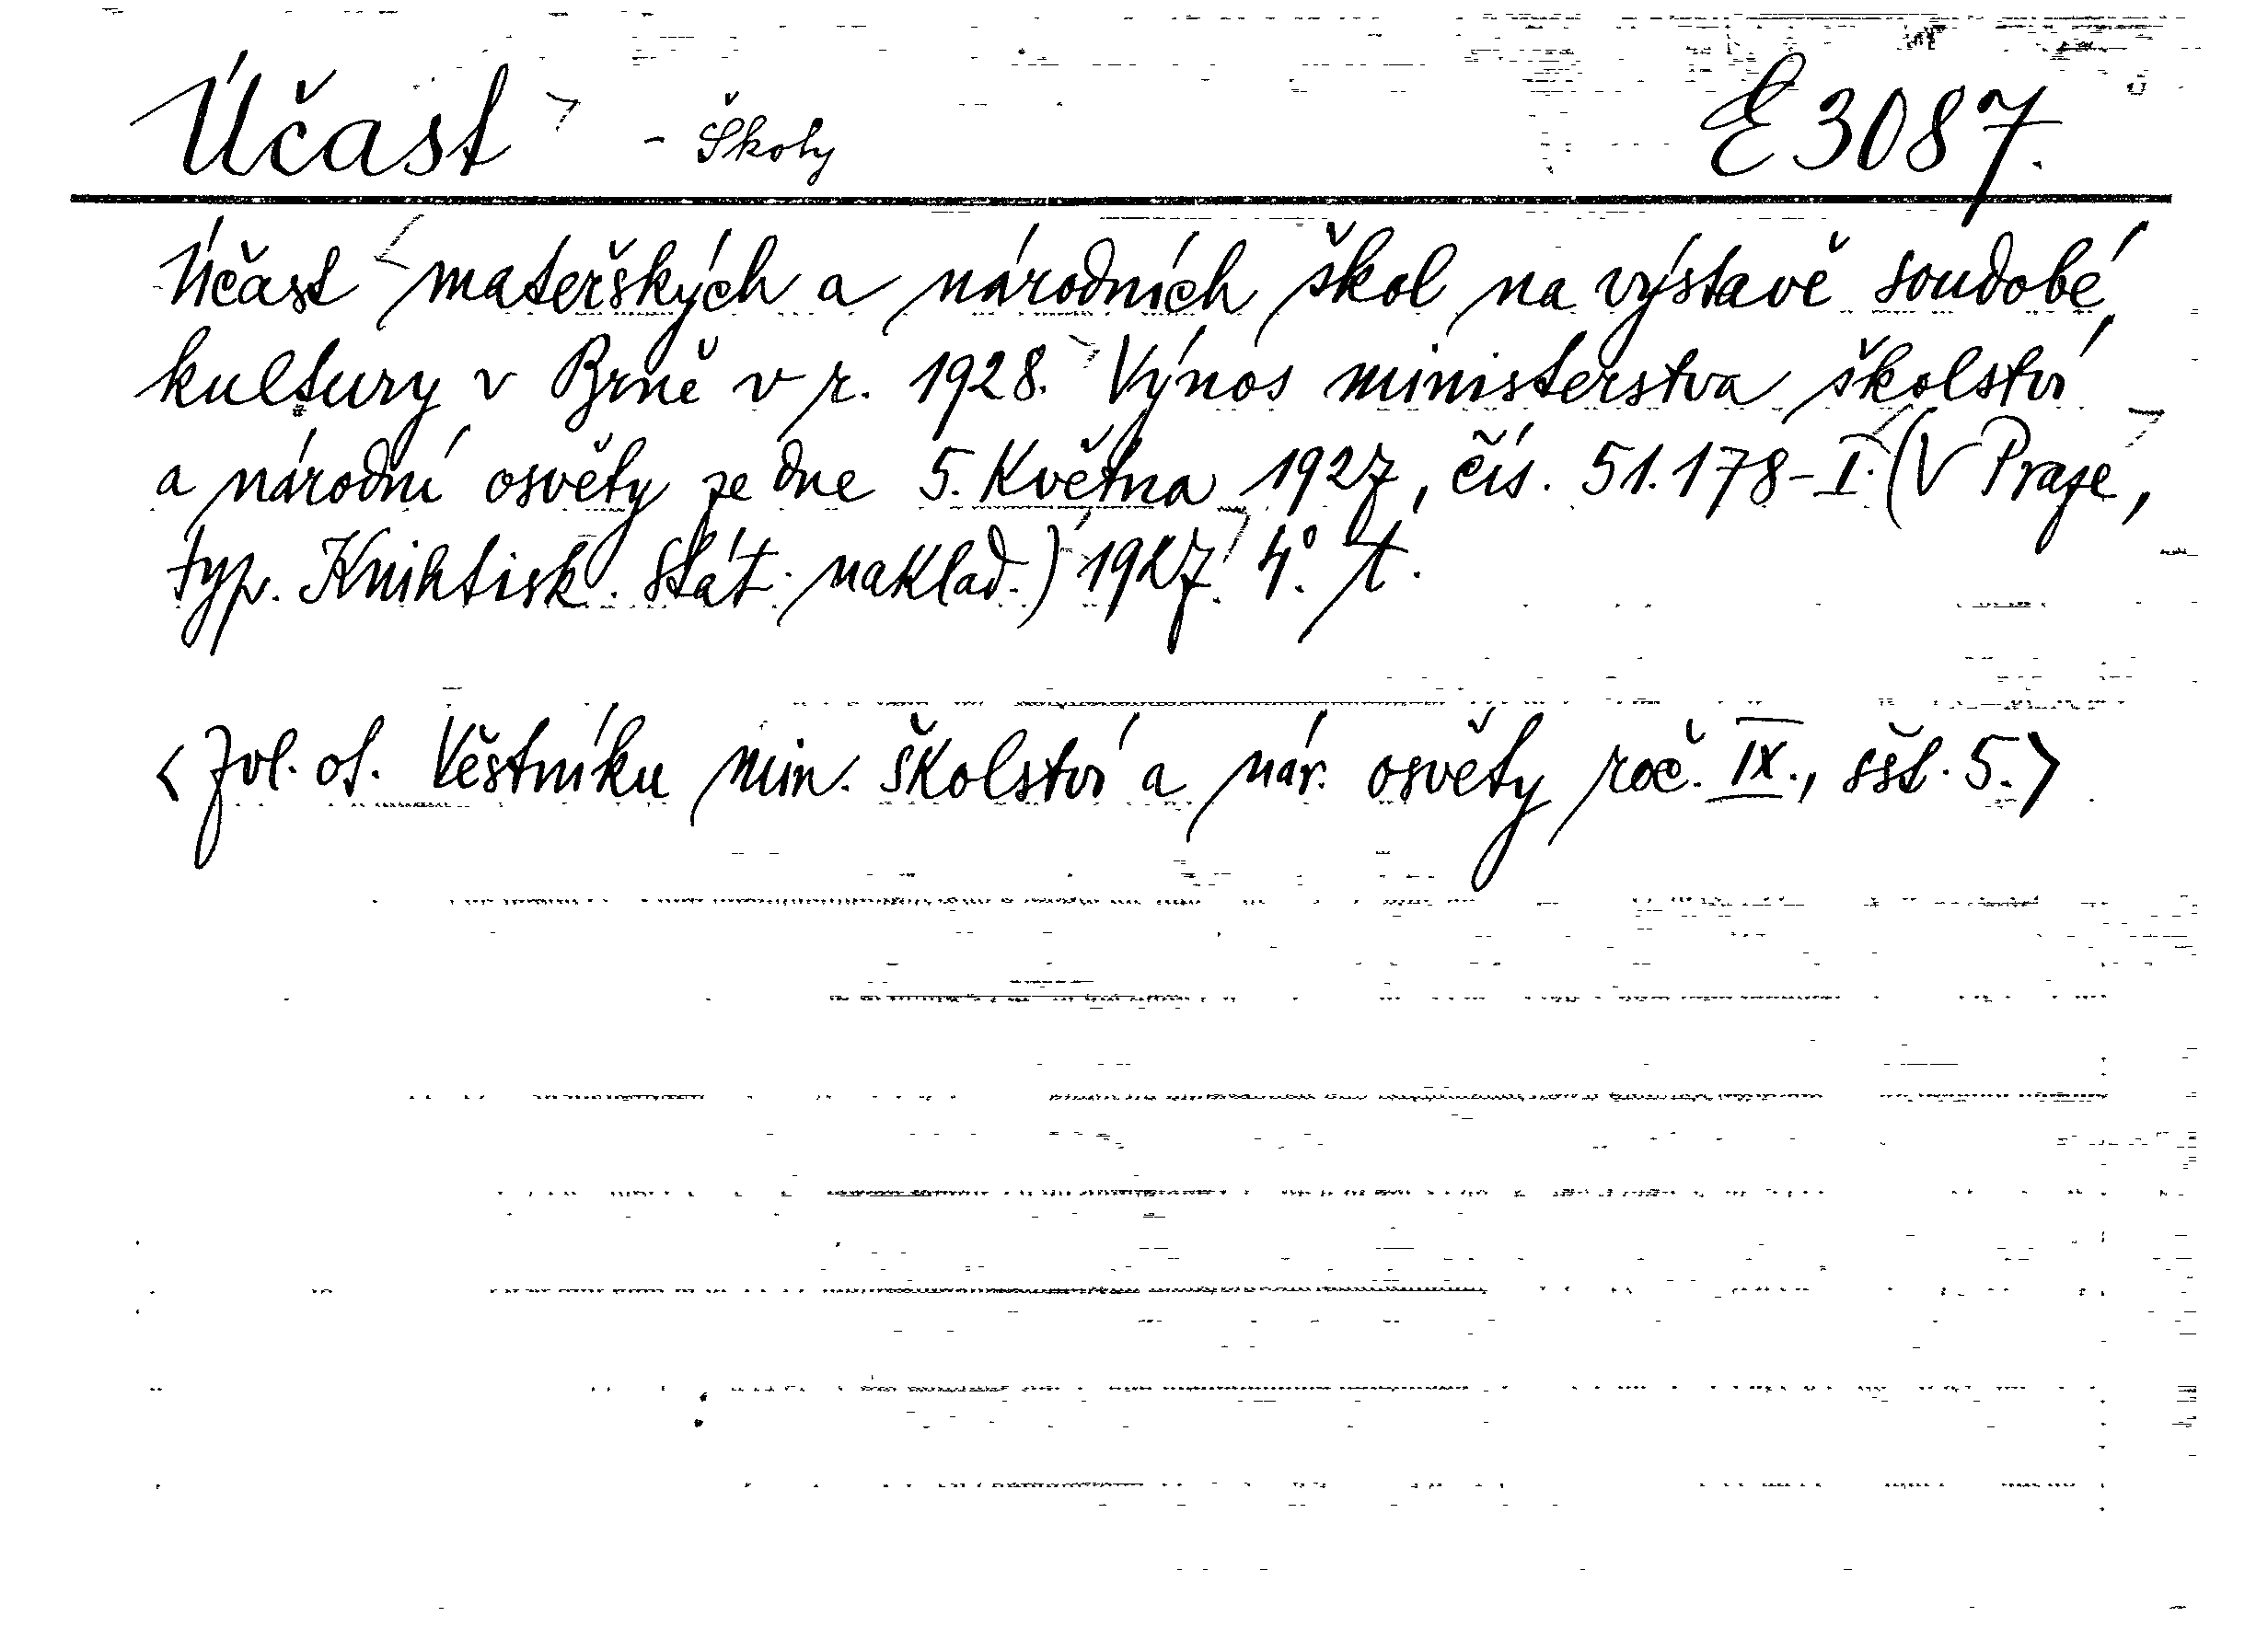 Účast - Školy E 3087.
Účast mateřských a národních škol na výstavě soudobé
kultury v Brně v r. 1928. Výnos ministerstva školství
a národní osvěty ze dne 5. Května 1927, čís. 51.178-I. (V Praze,
typ. Knihtisk. Stát. naklad.) 1927. 4°. 1.
<Zvl. ot. Věstníku min. školství a nár. osvěty roč. IX., sšt. 5.>